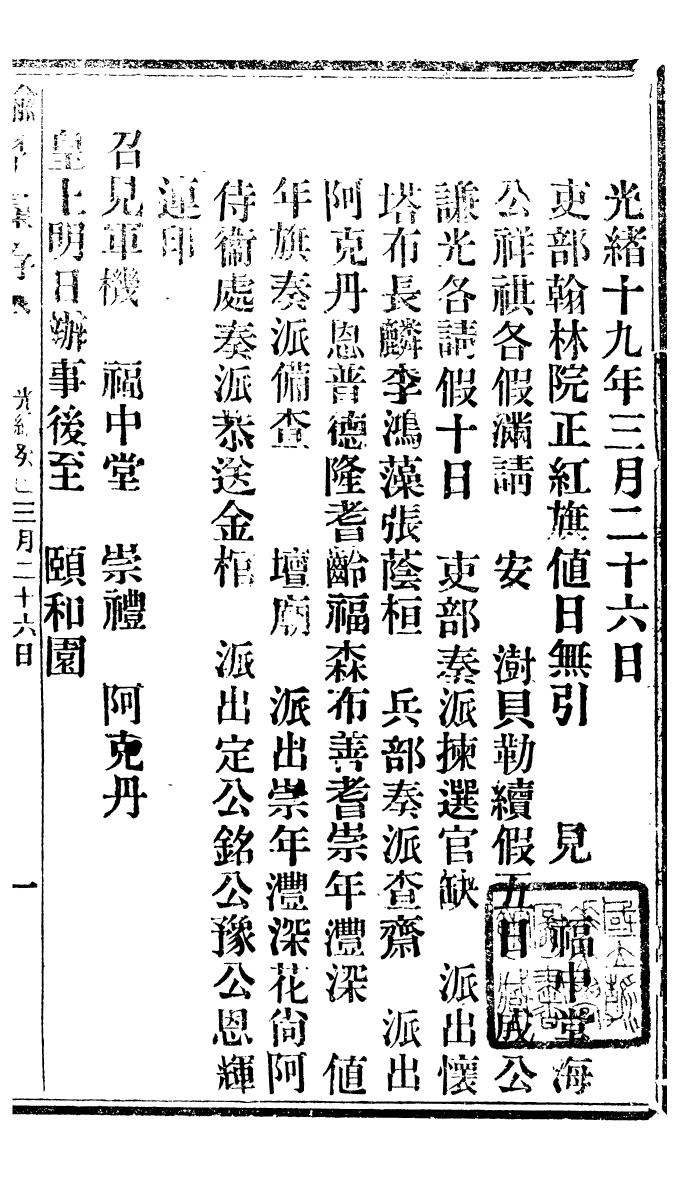 光緒十九年三月二十六日
吏部翰林院正紅旗値日無引 見 福中堂海
公祥祺各假滿請 安 澍貝勒續假五日 成公
謙光各請假十日 吏部奏派揀選官缺 派出懷
塔布長麟李鴻藻張蔭桓 兵部奏派查齋 派出
阿克丹恩普德隆耆齡福森布善耆崇年灃深 値
年旗奏派備查 壇廟 派出崇年灃深花尙阿
侍衞處奏派恭送金棺 派出定公銘公豫公恩輝
連印
召見軍機 福中堂 崇禮 阿克丹
皇上明日辦事後至 頤和園
諭摺彙存 光緒 三月二十六日 一